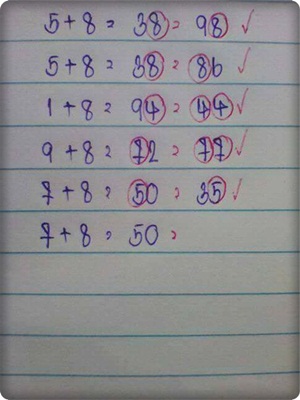 5+8=38=98✓
5+8=38=86✓
1+8=94=44✓
9+8=72=77✓
7+8=50=35✓
7+8=50=